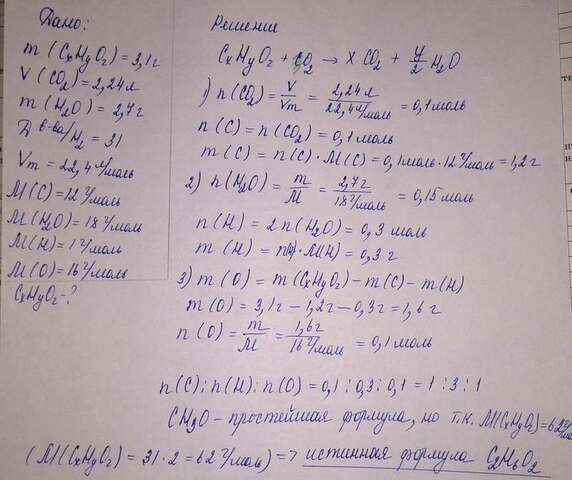 Дано:
m (CxHyOz) = 3,1 г
V (CO2) = 2,24 л
m (H2O) = 2,7 г
Д в-ва/H2 = 31
Vm = 22,4 л/моль
M(C) = 12 г/моль
M(H2O) = 18 г/моль
M(H) = 1 г/моль
M(O) = 16 г/моль
CxHyOz - ?
Решение
CxHyOz + O2 → X CO2 + y/2 H2O
1) n(CO2) = V/Vm = 2,24 л/22,4 л/моль = 0,1 моль
n(C) = n(CO2) = 0,1 моль
m(C) = n(C) · M(C) = 0,1 моль · 12 г/моль = 1,2 г
2) n(H2O) = m/M = 2,7 г/18 г/моль = 0,15 моль
n(H) = 2 n(H2O) = 0,3 моль
m(H) = n(H) · M(H) = 0,3 г
3) m(O) = m(CxHyOz) - m(C) - m(H)
m(O) = 3,1 г - 1,2 г - 0,3 г = 1,6 г
n(O) = m/M = 1,6 г/16 г/моль = 0,1 моль
n(C) : n(H) : n(O) = 0,1 : 0,3 : 0,1 = 1 : 3 : 1
CH3O - простейшая формула, но т.к. M(CxHyOz) = 62 г/моль
(M(CxHyOz) = 31 · 2 = 62 г/моль) => истинная формула C2H6O2